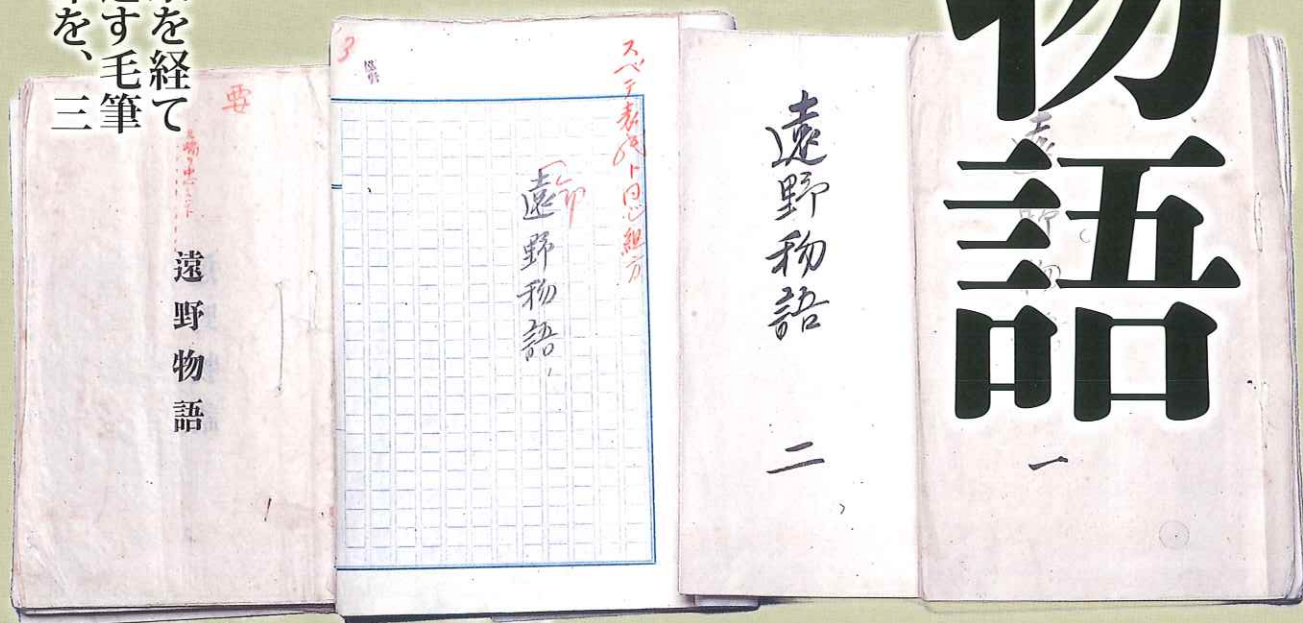 物語
一
遠野物語
二
スベテ表紙ト同ジ組方
遠野物語
3
要
遠野物語
を経て
す毛筆
を、三